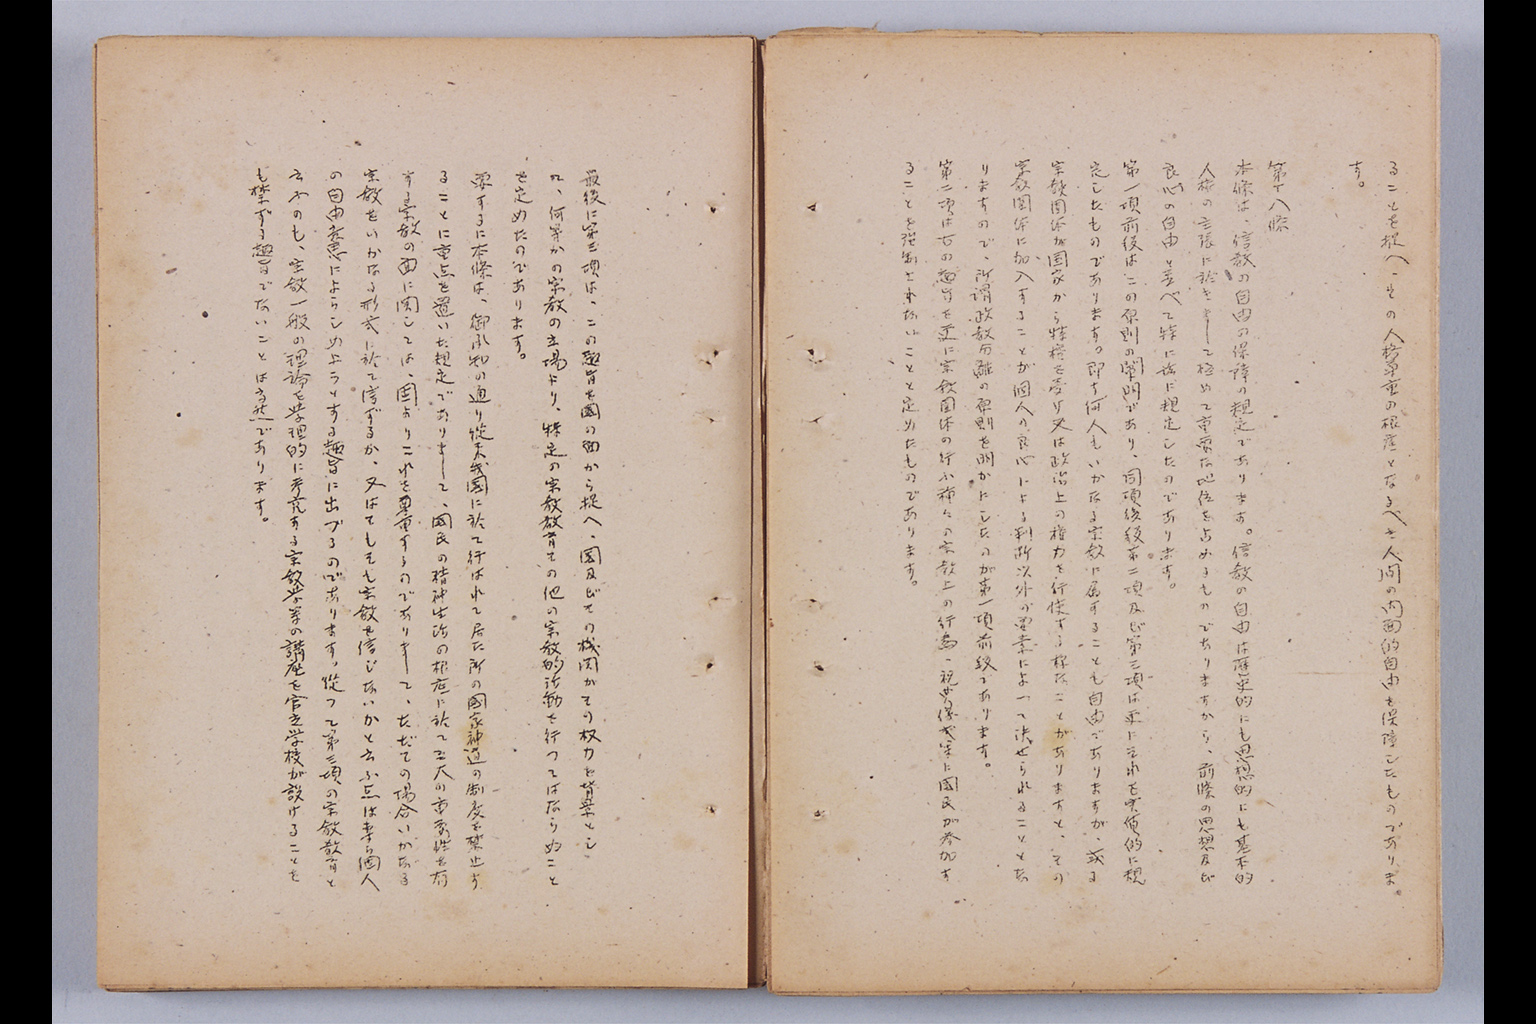 ることを捉へ、その人格尊重の根底となるべき人間の内面的自由を保障したものでありま
す。
第十八條
本條は、信教の自由の保障の規定であります。信教の自由は歴史的にも思想的にも基本的
人権の主張に於きまして極めて重要な地位を占めるものでありますから、前條の思想及び
良心の自由と並べて特に茲に規定したのであります。
第一項前後はこの原則の闡明であり、同項後段第二項及び第三項は更にそれを実質的に規
定したものであります。即す何人もいかなる宗教に属することも自由でありますが、或る
宗教団体が国家から特権を受け又は政治上の権力を行使する様なことがありますと、その
宗教団体に加入することが個人の良心による判断以外の要素によつて決せられることとな
りますので、所謂政教分離の原則を明かにしたのが第一項前段であります。
第二項は右の趣旨を更に宗教団体の行ふ種々の宗教上の行為、祝典儀式等に国民が参加す
ることを強制されないことと定めたものであります。
最後に第三項は、この趣旨を國の面から捉へ、国及びその機関がその権力を背景とし
て、何等かの宗教の立場より、特定の宗教教育その他の宗教的活動を行つてはならぬこと
を定めたのであります。
要するに本條は、御承知の通り従来我國に於て行はれて居た所の國家神道の制度を禁止す
ることに重点を置いた規定でありまして、國民の精神生活の根底に於て至大の重要性を有
する宗教の面に関しては、固よりこれを尊重するのでありまして、ただその場合いかなる
宗教をいかなる形式に於て信ずるか、又はそもそも宗教を信じないかと云ふ点は専ら個人
の自由意思によらしめようとする趣旨に出づるのであります。従つて第三項の宗教教育と
云ふのも、宗教一般の理論を学理的に考究する宗教学等の講座を官立学校が設けることを
も禁ずる趣旨でないことは当然であります。